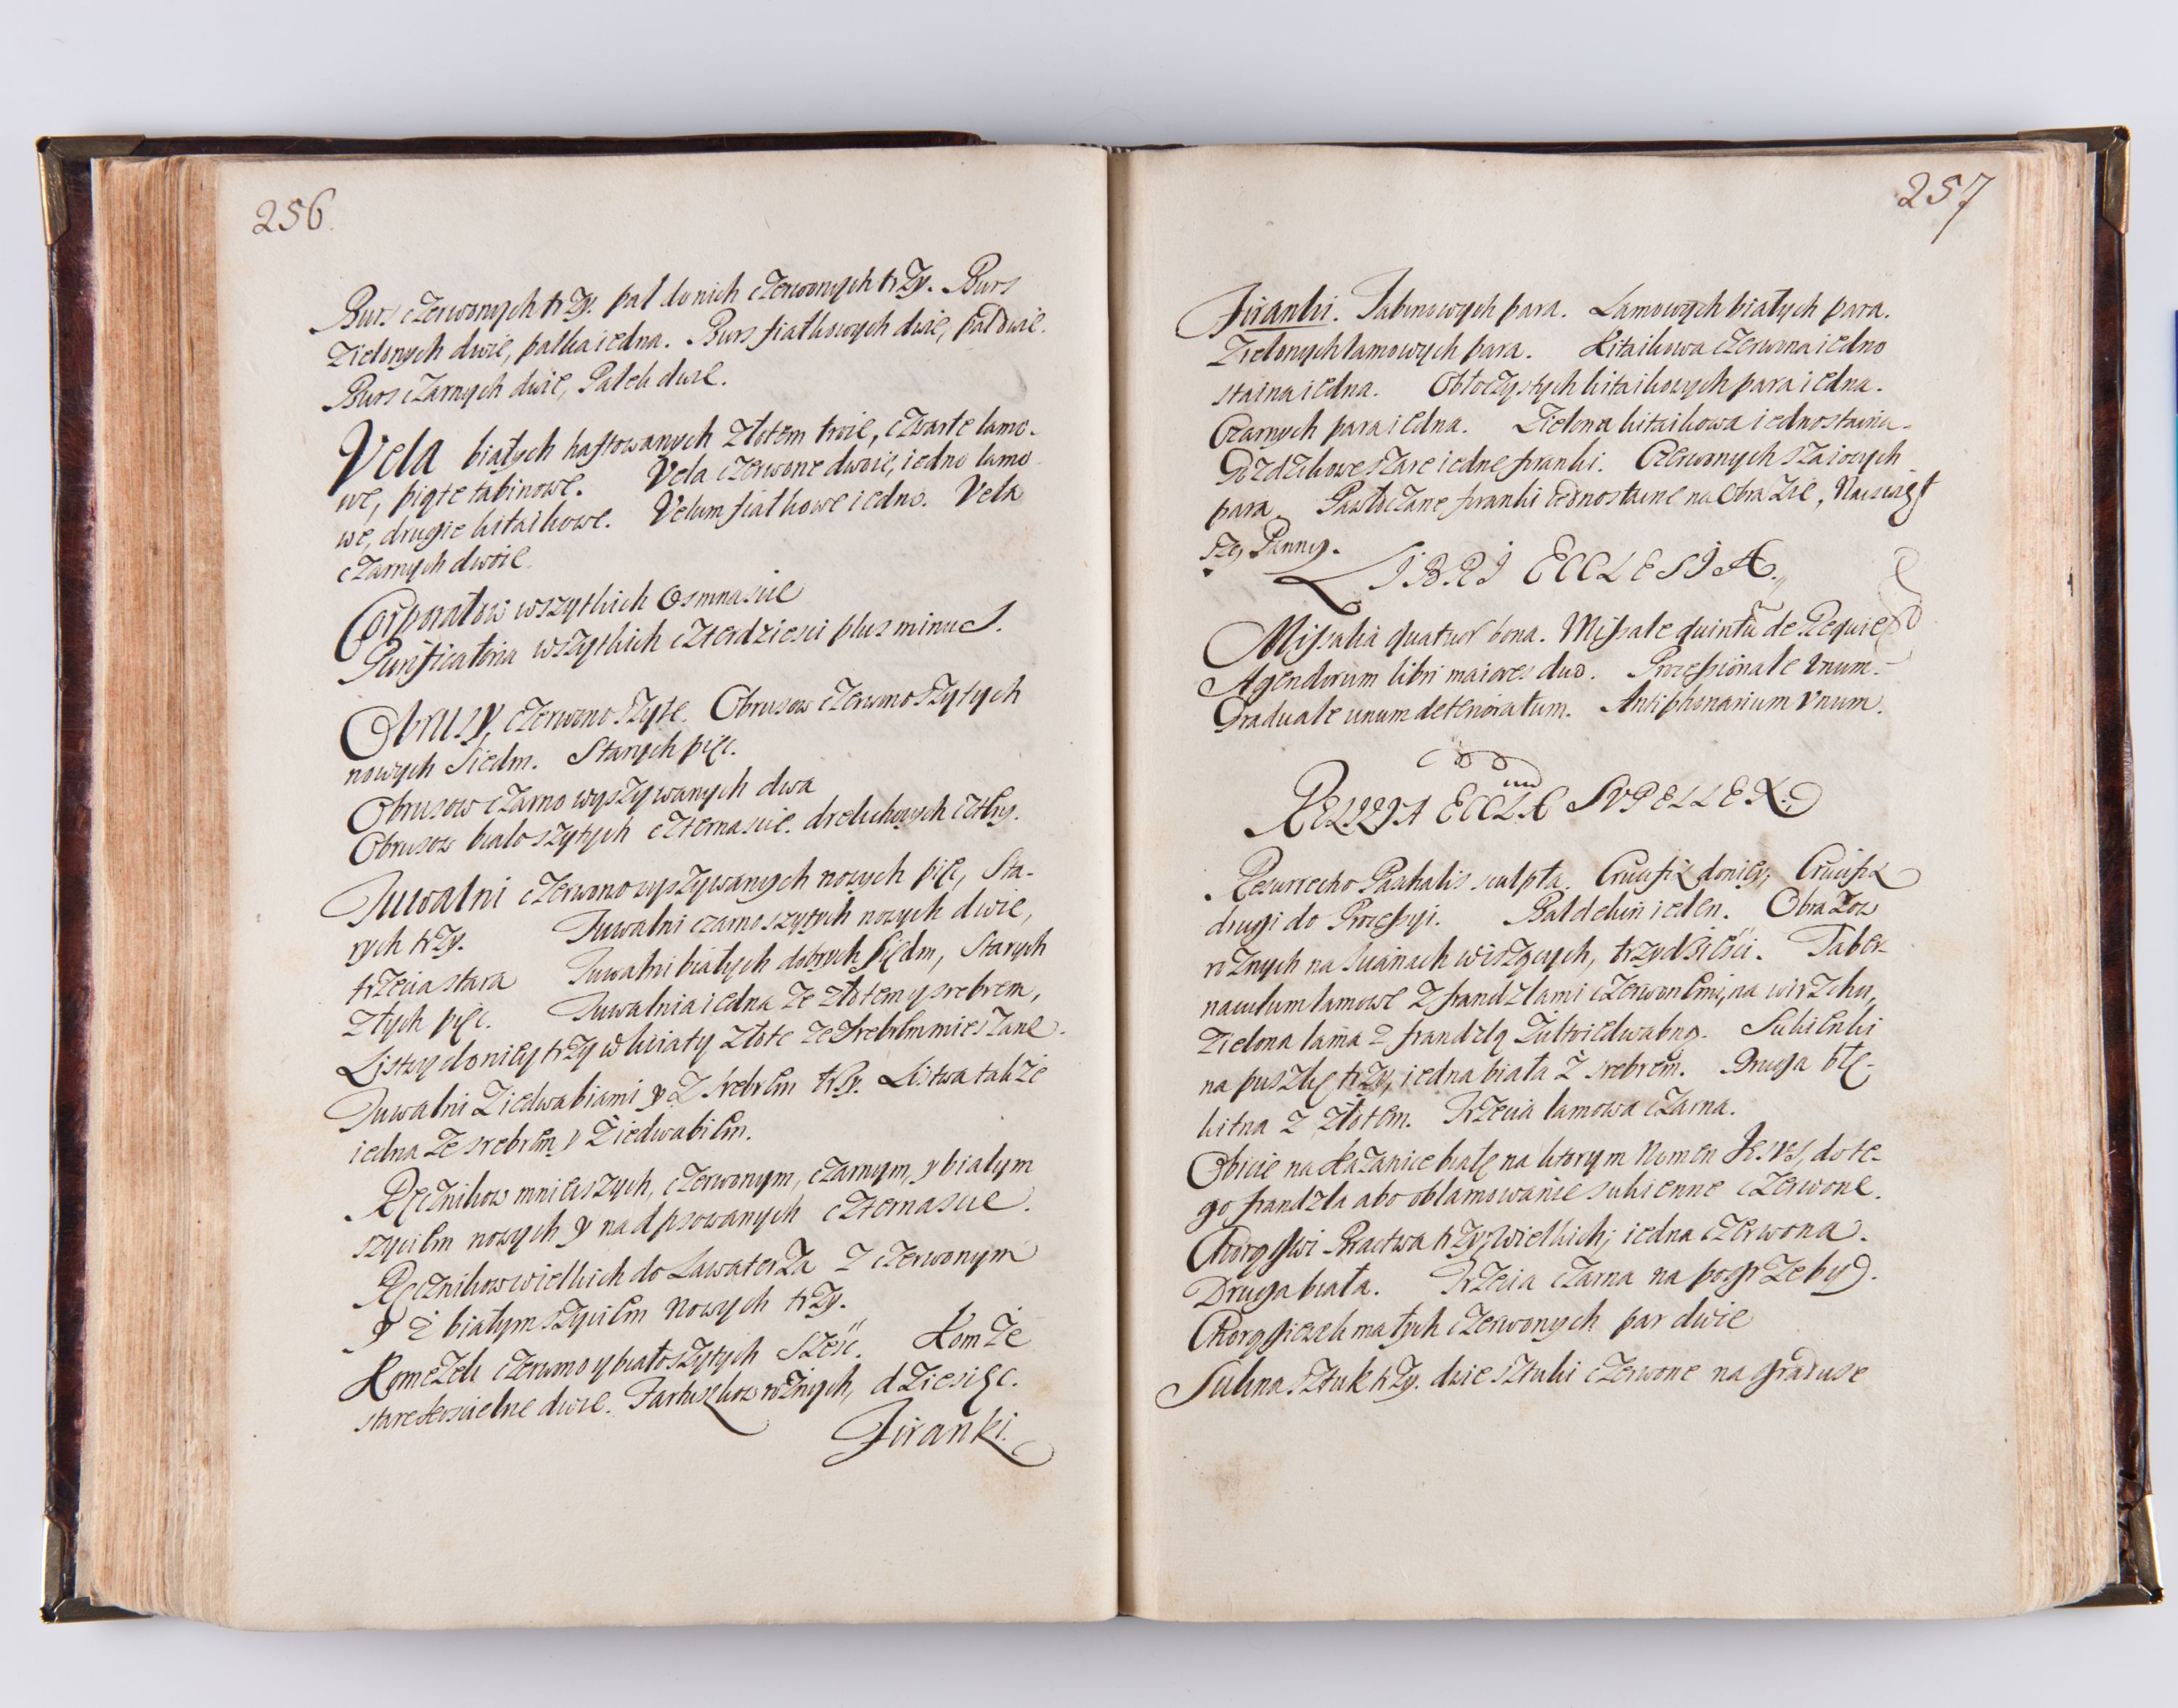 256.
Burs czerwonych trzy. pal do nich czerwonych trzy. Burs
Zielonych dwie, palka iedna. Burs fiałkowych dwie, pal dwie.
Burs czarnych dwie, Palek dwie.
Vela białych haftowanych złotem troie, czwarte lamo-
we, piąte tabinowe. Vela czerwone dwoie, iedno lamo
we, drugie kitaikowe. Velum fiałkowe iedno. Vela
czarnych dwoie.
Corporałow wszytkich Osmnascie
Purificatoria wszytkich czterdziesci plus minus.
Obrusy, czerwono szyte. Obrusow czerwono szytych
nowych Siedm. Starych pięc.
Obrusow czarno wyszywanych dwa
Obrusow biało szytych czternascie. drelichowych cztery.
Tuwalni czerwono wyszywanych nowych pięc, Sta-
rych trzy. Tuwalni czarno szytych nowych dwie,
trzecia stara Tuwalni białych dobrych siedm, Starych
złych pięc. Tuwalnia iedna ze złotem y srebrem,
Listwy do niey trzy w kwiaty złote ze srebrem mieszane.
Tuwalni z iedwabiami y z srebrem trzy. Listwa także
iedna ze srebrem y z iedwabiem.
Ręcznikow mnieyszych, czerwonym, czarnym, y białym
szyciem nowych y nadpsowanych czternascie.
Ręcznikow wielkich do Lawaterza z czerwonym
y z białym szyciem nowych trzy.
Komeżek czerwono y biało szytych sześć. Komże
stare kościelne dwie. Fartuszkow rożnych, dziesięc.
Firanki.
257
Firanki. Tabinowych para. Lamowych białych para.
Zielonych lamowych para. Kitaikowa czerwona iedno
staina iedna. Obłoczystych kitaikowych para iedna.
Czarnych para iedna. Zielona kitaikowa iednostaina.
Gozdzikowe szare iedne firanki. Czerwonych szaiowych
para. Pawłoczane firanki iednostaine na Obrazie, Naiswięt
szey Panny.
LIBRI ECCLESIÆ.
Missalia quatuor bona. Missale quintũ de Requie
Agendorum libri maiores duo. Processionale Vnum.
Graduale unum deterioratum. Antiphonarium Vnum.
RELIQUA ECCLÆ SVPELLEX.
Resurrectio Paschalis sculpta. Crucifix do niey, Crucifix
drugi do Processyi. Baldekin ieden. Obrazow
rożnych na scianach wiszących, trzydzieści. Taber-
naculum lamowe z frandzlami czerwonemi, na wirzchu,
Zielona lama z frandzlą żułto iedwabną. Sukienki
na puszkę trzy, iedna biała z srebrem. Druga błę-
kitna z złotem. Trzecia lamowa czarna.
Obicie na Kazanice białe na ktorym Nomen JESVS, do te-
go frandzla abo oblamowanie sukienne czerwone.
Chorągwi Bractwa trzy, Wielkich, iedna czerwona.
Druga biała. Trzecia czarna na pogrzeby.
Chorągiezek małych czerwonych par dwie
Sukna sztuk trzy. dwie sztuki czerwone na graduse